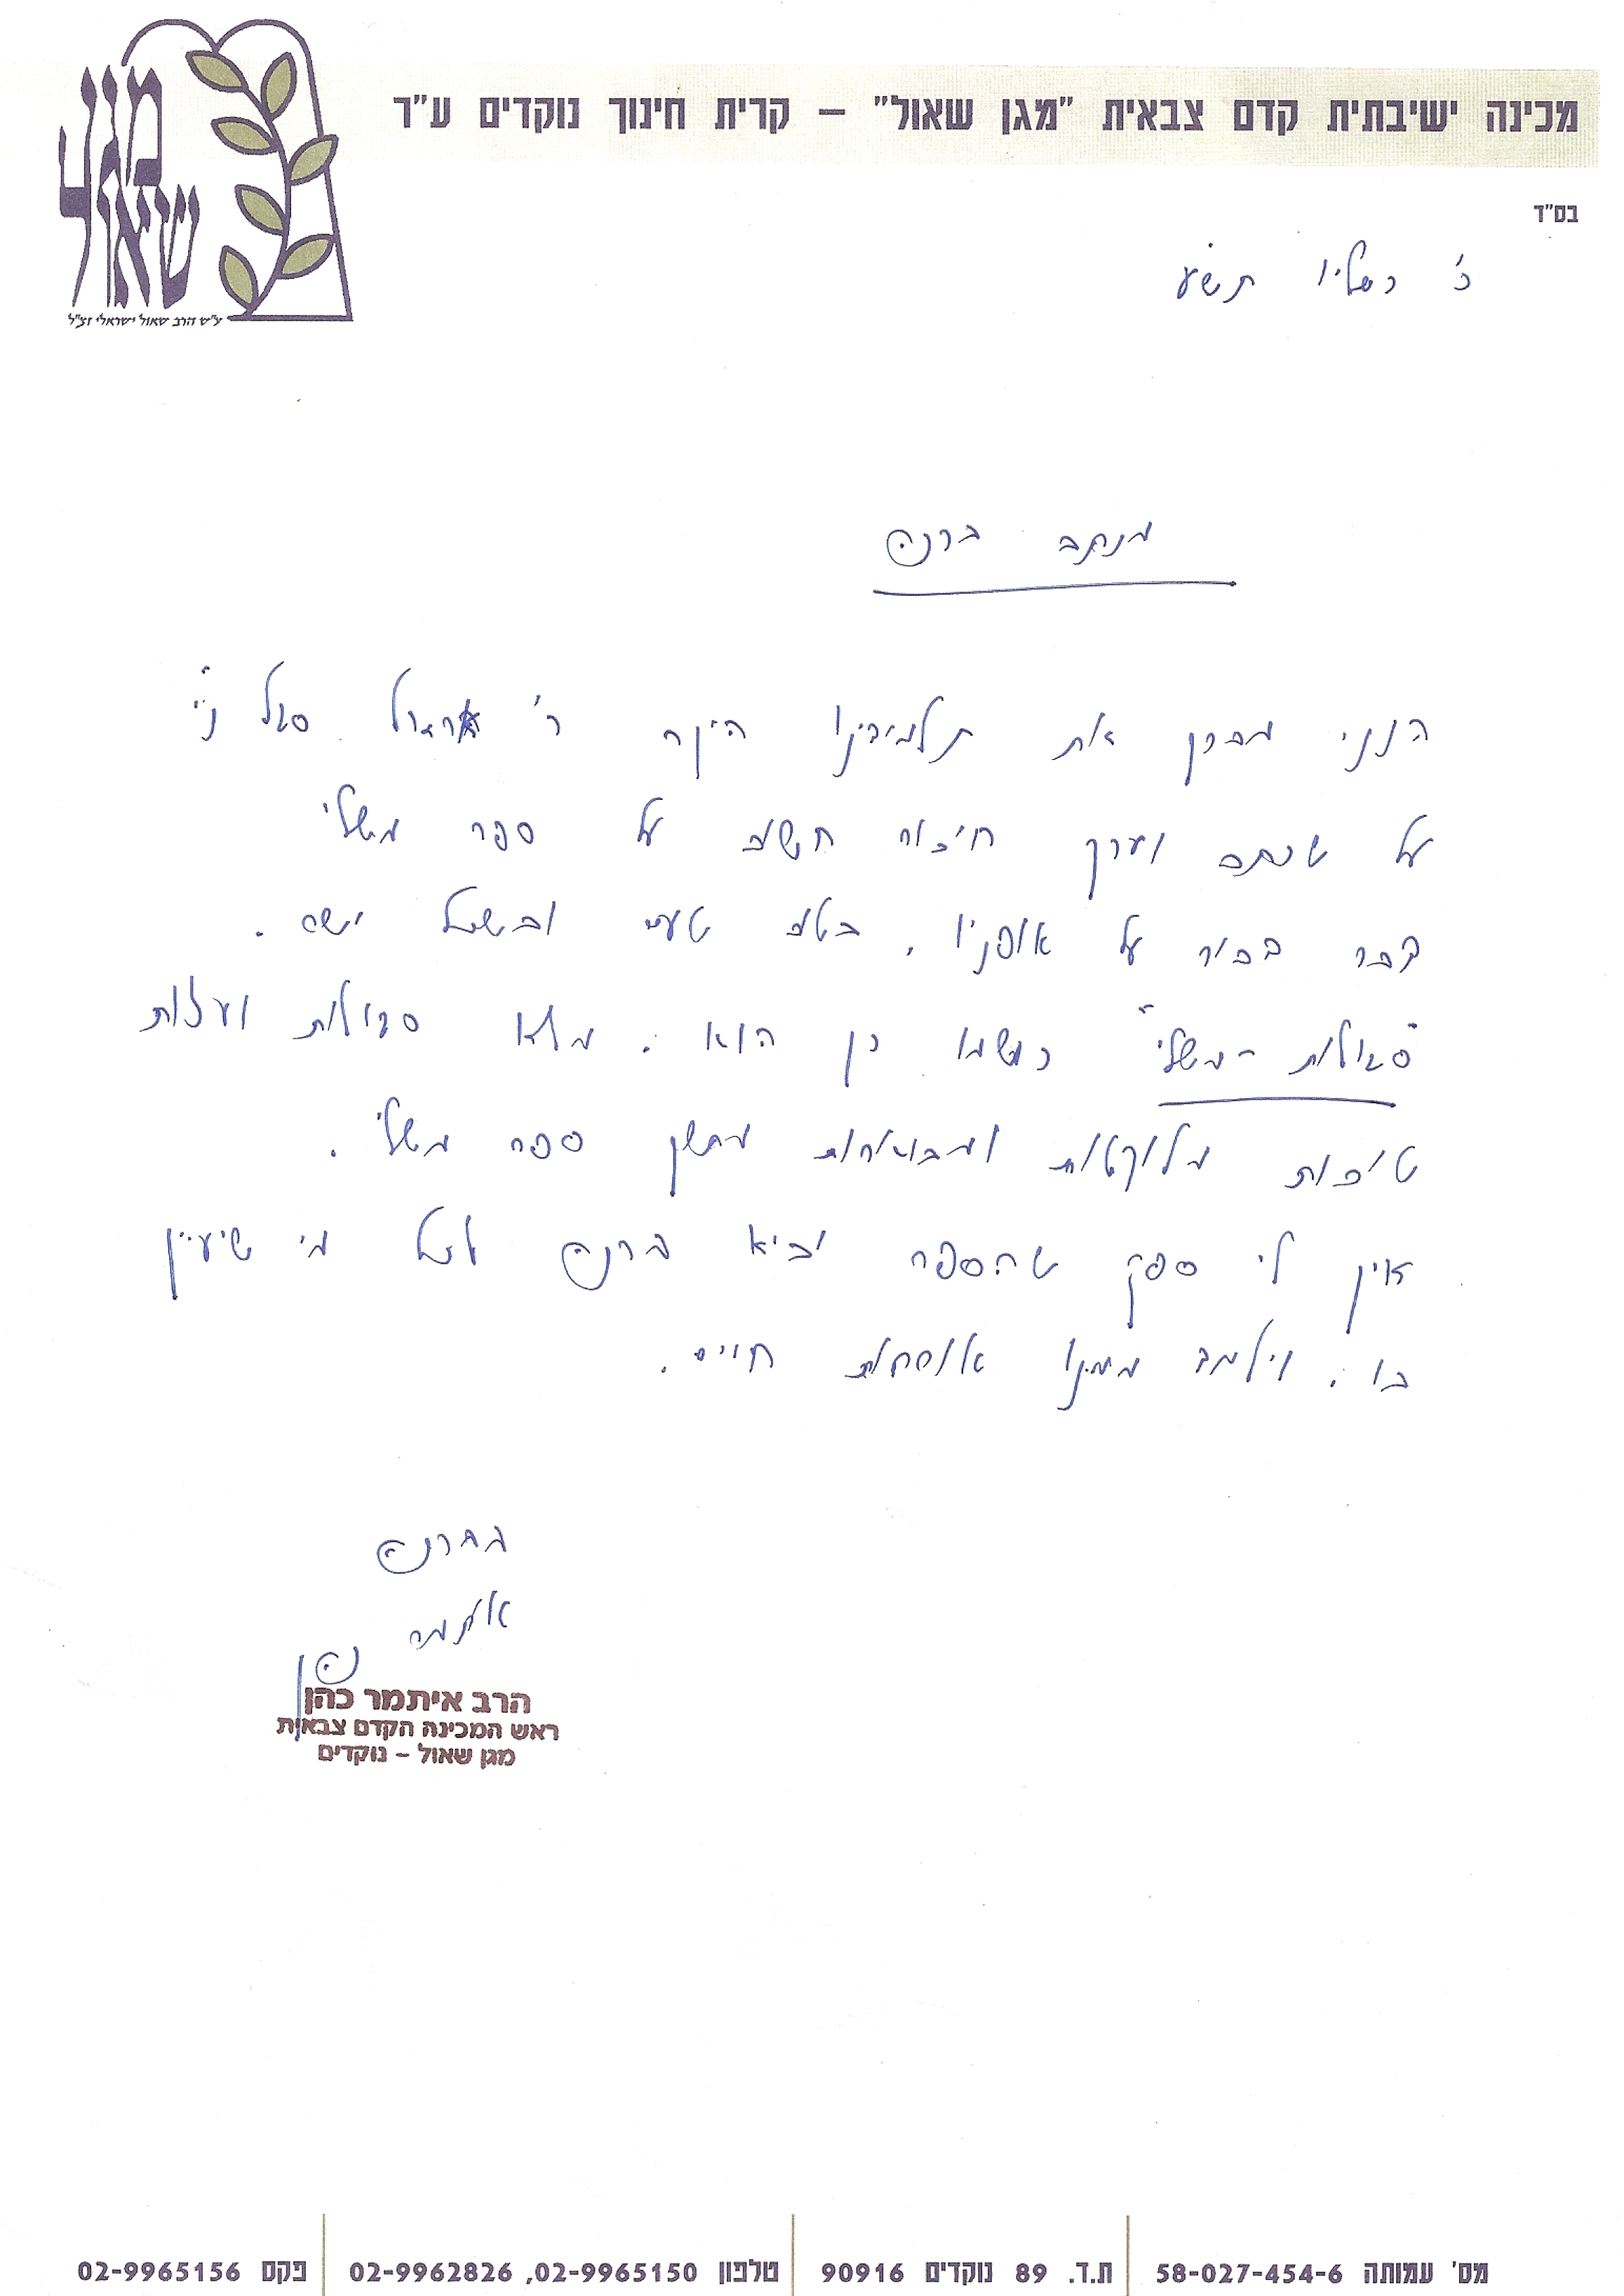 מכינה ישיבתית קדם צבאית "מגן שאול" – קרית חינוך נוקדים ע"ר
מגן
שאול
ע"ש הרב שאול ישראלי זצ"ל
בס"ד
כ' כסליו תש"ע
מכתב ברכה
הנני מברך את תלמידינו היקר ר' סגל נ"י
על שכתב וערך חיבור חשוב על ספר משלי
דבר דבור על אופניו, בטוב טעם ובשכל ישר.
"סגולות משלי" כשמו כן הוא: מלא סגולות ועצות
טובות מלוקטות ומבוארות מתוך ספר משלי.
אין לי ספק שהספר יביא ברכה לכל מי שיעיין
בו, וילמד ממנו אורחות חיים.
בברכה
איתמר כהן
הרב איתמר כהן
ראש המכינה הקדם צבאית
מגן שאול – נוקדים
מס' עמותה 58-027-454-6 ת.ד. 89 נוקדים 90916 טלפון 02-9965150, 02-9962826 פקס 02-9965156